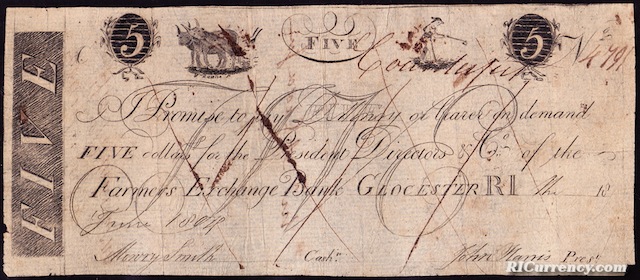 FIVE
5 FIVE 5
No 4791
I Promise to pay or bearer on demand
FIVE dollars for the President Directors & Co. of the
Farmer's Exchange Bank GLOCESTER RI the 18
1804
Mowry Smith Cashr. John Harris Prest.
RICurrency.com